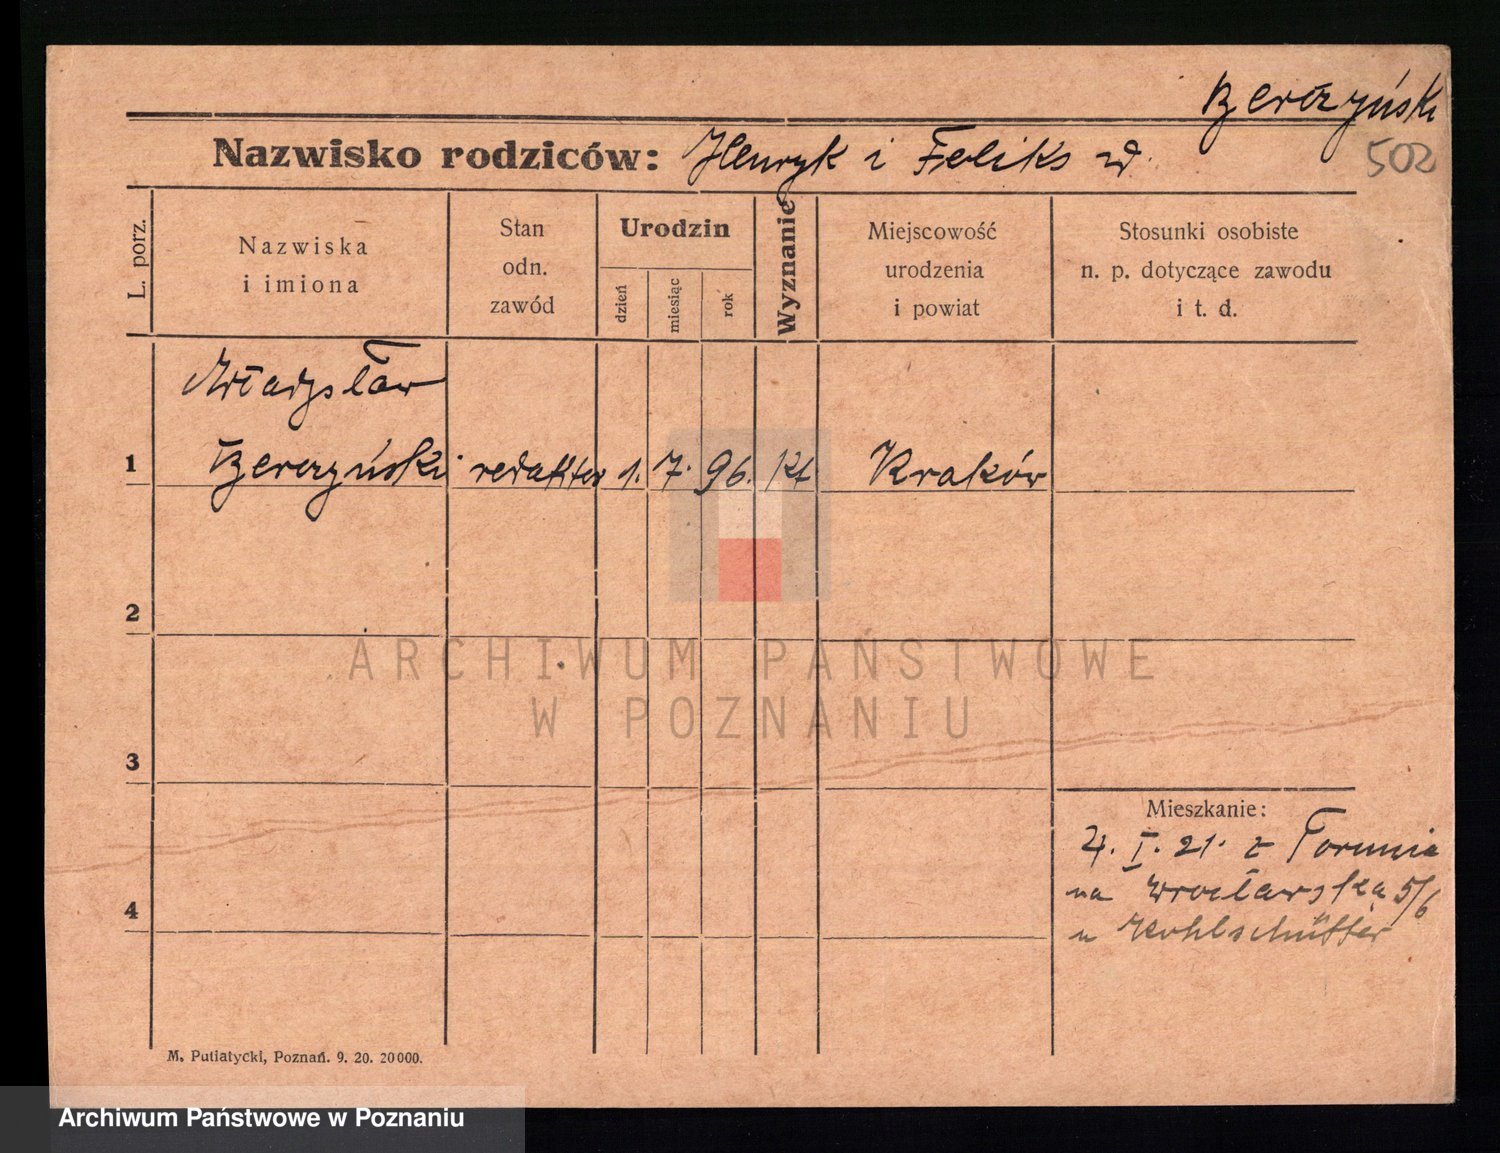 502
Nazwisko rodziców: Henryk i Feliks
L. porz.
Nazwiska
i imiona
Stan
odn.
zawód
Urodzin
dzień
miesiąc
rok
Wyznanie
Miejscowość
urodzenia
i powiat
Stosunki osobiste
n. p. dotyczące zawodu
i t. d.
Władysław
1 redaktor 1. 7. 96. kt Kraków
2
ARCHIWUM PAŃSTWOWE
W POZNANIU
3
Mieszkanie:
4. I. 21. z Torunia
na Wrocławską 5/6
u Kohlschütter
4
M. Putiatycki, Poznań. 9. 20. 20000.
Archiwum Państwowe w Poznaniu